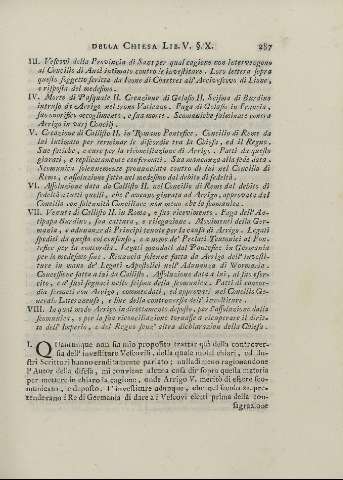 DELLA CHIESA LIB. V. §. X. 287
III. Vescovi della Provincia di Sans per qual cagione non intervengono
al Concilio di Anse intimato contro le investiture. Loro lettera sopra
questo soggetto scritta da Ivone di Chartres all' Arcivescovo di Lione,
e risposta del medesimo.
IV. Morte di Pasquale II. Creazione di Gelasio II. Scisma di Burdino
intruso da Arrigo nel trono Vaticano. Fuga di Gelasio in Francia,
sue onorifico accoglimento, e sua morte. Scomuniche fulminate contra
Arrigo in varj Concilj.
V. Creazione di Callisto II. in Romano Pontefice. Concilio di Rems da
lui intimato per terminare le discordie tra la Chiesa, ed il Regno.
Sue fatiche, e cure per la riconciliazione di Arrigo. Patti da questo
giurati, e replicatamente confermati. Sua mancanza alla fede data.
Scomunica solennemente pronunciata contro di lui nel Concilio di
Rems, e assoluzione fatta nel medesimo dal debito di fedeltà.
VI. Assoluzione data da Callisto II. nel Concilio di Rems dal debito di
fedeltà a tutti quelli, che l' avevano giurata ad Arrigo, approvata dal
Concilio con solennità Conciliare non meno che la scomunica.
VII. Venuta di Callisto II. in Roma, e suo ricevimento. Fuga dell' An-
tipapa Burdino, sua cattura, e relegazione. Movimenti della Ger-
mania, e adunanze di Principi tenute per la causa di Arrigo. Legati
spediti da questo col consenso, e a nome de' Prelati Teutonici al Pon-
tefice per la concordia. Legati mandati dal Pontefice in Germania
per lo medesimo fine. Rinuncia solenne fatta da Arrigo dell' investi-
ture in mano de' Legati Apostolici nell' Adunanza di Wormazia.
Concessione fatta a lui da Callisto. Assoluzione data a lui, al suo eser-
cito, e a' suoi seguaci nelle scisma dalla scomunica. Patti di concor-
dia fermati con Arrigo, commendati, ed approvati nel Concilio Ge-
nerale Lateranense, e fine della controversia dell' investiture.
VIII. In qual modo Arrigo indirettamente deposto, per l'assoluzione dalla
scomunica, e per la sua riconciliazione tornasse a ricuperare il dirit-
to dell' Imperio, e del Regno senz' altra dichiarazione della Chiesa.
I. QUantunque non sia mio proposito trattar quì della controver-
sia dell' investiture Vescovili, della quale molti chiari, ed illu-
stri Scrittori hanno eruditamente parlato; nulladimeno ragionandone
l' Autor della difesa, mi conviene alcuna cosa dir sopra questa materia
per mettere in chiaro la cagione, onde Arrigo V. meritò di essere sco-
municato, e deposto. L' investiture adunque, che nell' undecimo pre-
tendevano i Re di Germania di dare a i Vescovi eletti prima della con-
sigrazione